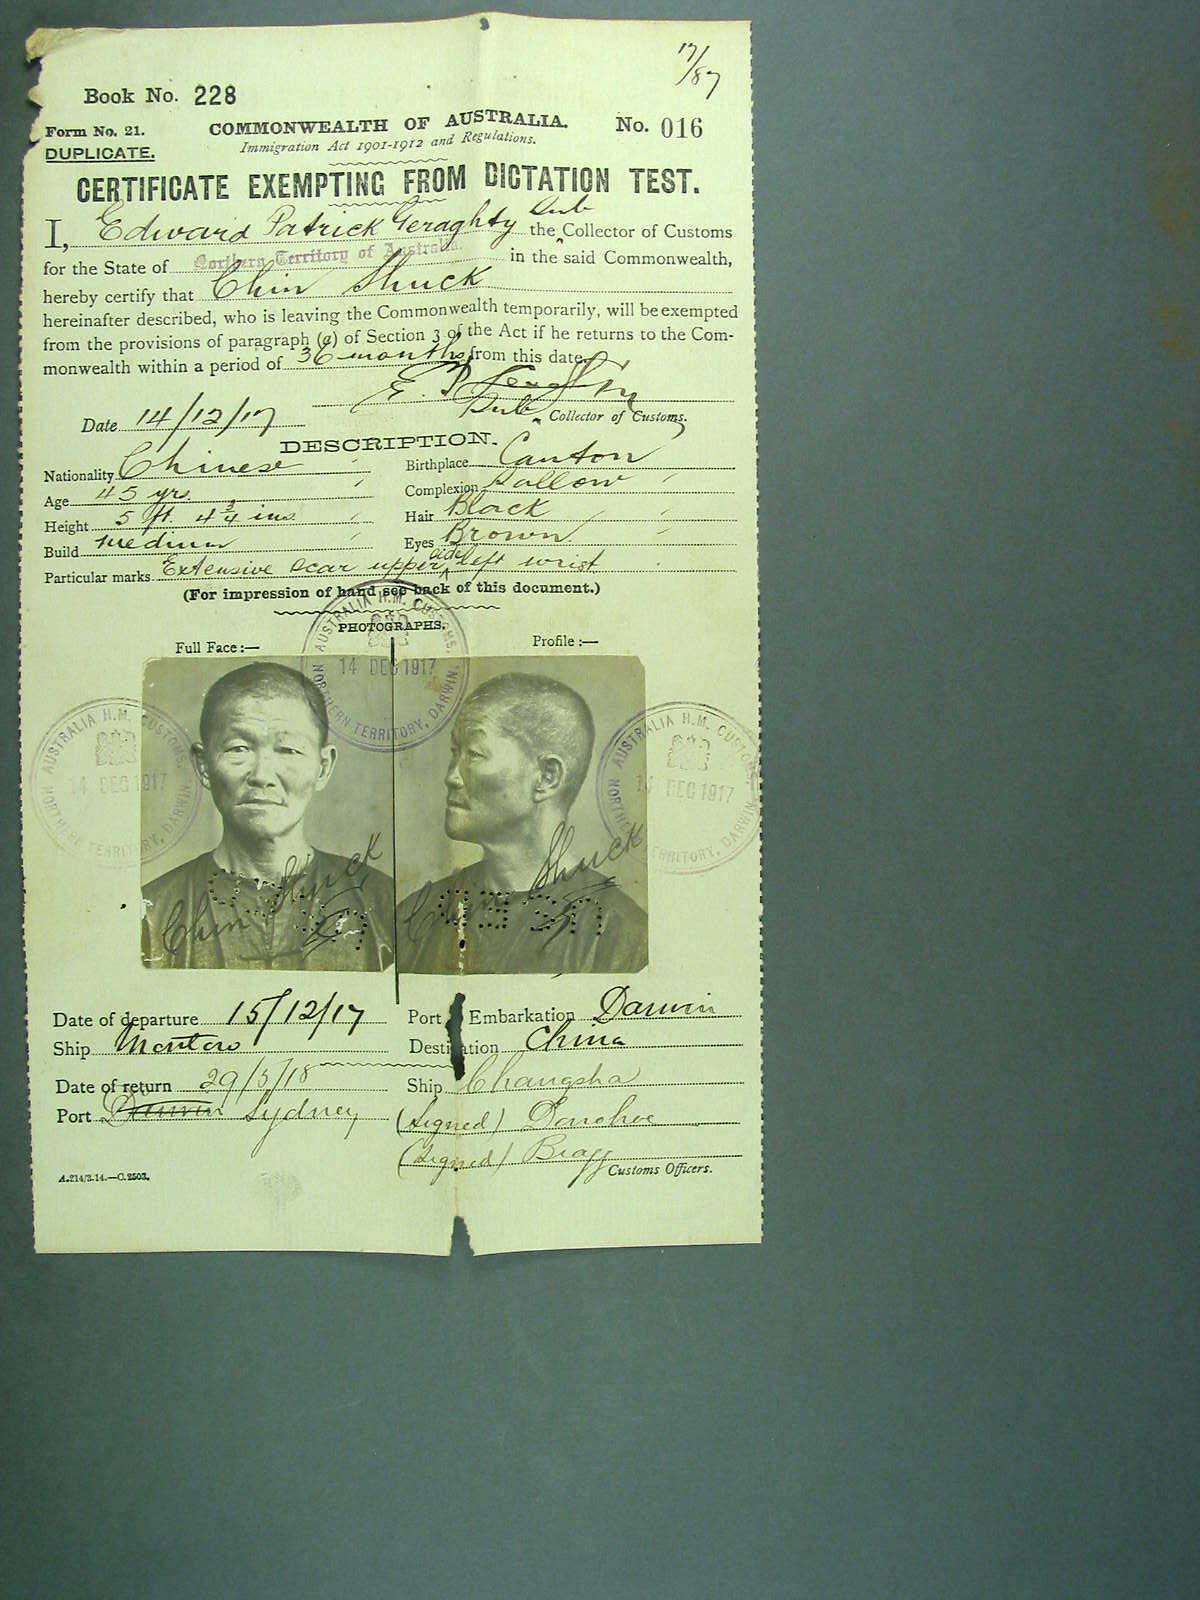 17/87
Book No. 228
Form No. 21. COMMONWEALTH OF AUSTRALIA. No. 016
DUPLICATE. Immigration Act 1901-1912 and Regulations.
CERTIFICATE EXEMPTING FROM DICTATION TEST.
I, Edward Patrick Geraghty the Sub Collector of Customs
for the State of Northern Territory of Australia in the said Commonwealth,
hereby certify that Chin Shuck
hereinafter described, who is leaving the Commonwealth temporarily, will be exempted
from the provisions of paragraph (a) of Section 3 of the Act if he returns to the Com-
monwealth within a period of 36 months from this date.
Date 14/12/17 Sub Collector of Customs.
DESCRIPTION.
Nationality Chinese Birthplace Canton
Age 45 yrs. Complexion Sallow
Height 5 ft. 4 3/4 ins Hair Black
Build medium Eyes Brown
Particular marks Extensive scar upper side left wrist
(For impression of hand see back of this document.)
PHOTOGRAPHS.
Full Face:— Profile:—
AUSTRALIA H.M. CUSTOMS. 14 DEC 1917 NORTHERN TERRITORY, DARWIN
AUSTRALIA H.M. CUSTOMS. 14 DEC 1917 NORTHERN TERRITORY, DARWIN
AUSTRALIA H.M. CUSTOMS. 14 DEC 1917 NORTHERN TERRITORY, DARWIN
Chin Shuck
Chin Shuck
Date of departure 15/12/17 Port Embarkation Darwin
Ship Montoro Destination China
Date of return 29/5/18 Ship Changsha
Port Darwin Sydney (Signed) Donohoe
(Signed) Bragg
Customs Officers.
A.214/3.14.—C.2503.